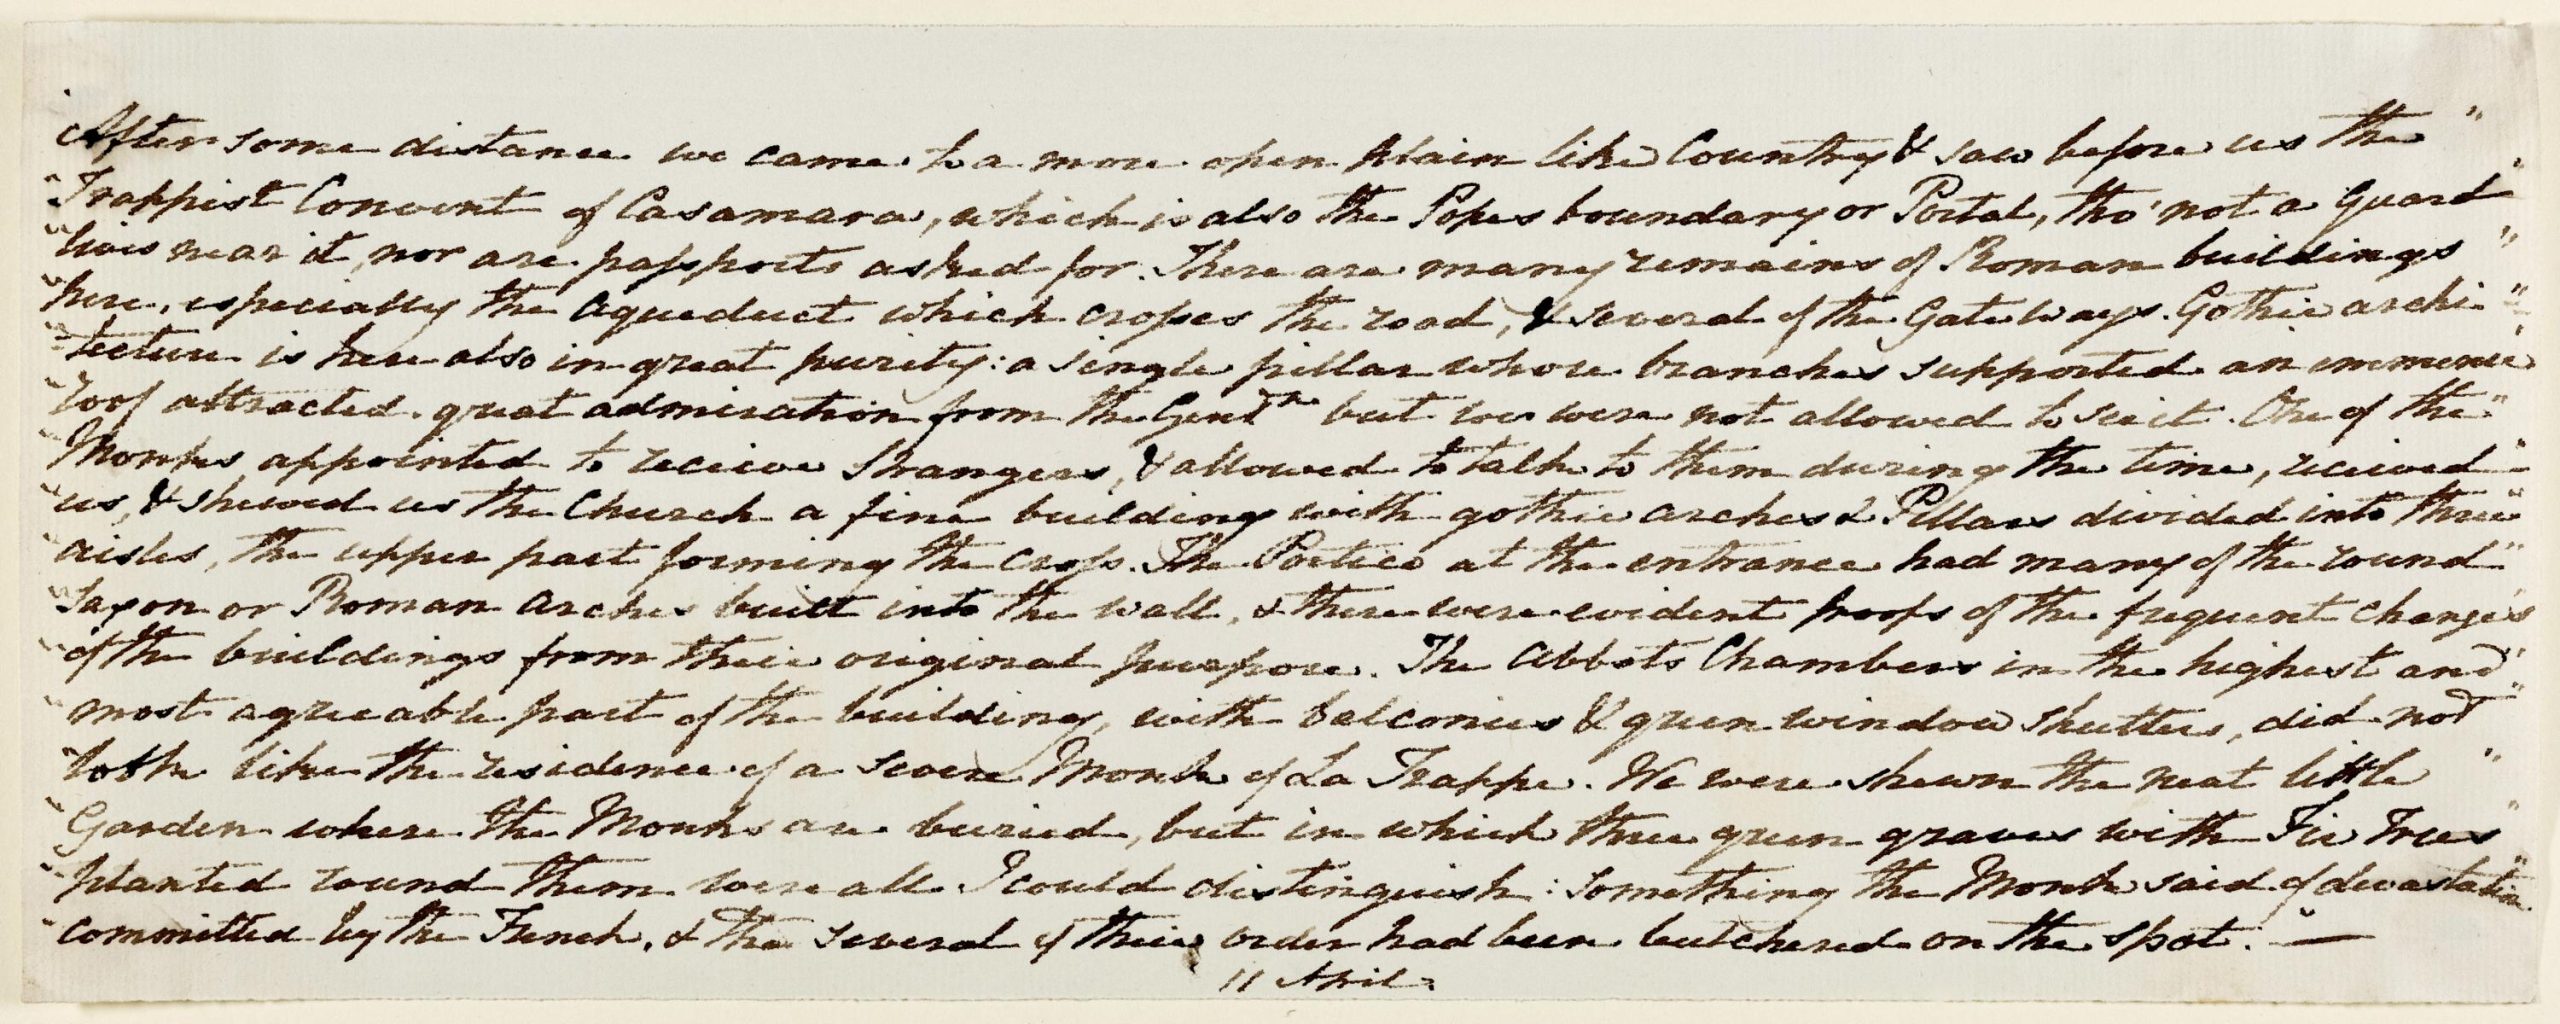 After some distance we came to a more open plain like Country & saw before us the "
" Trappist Convent of Casamara, which is also the Popes boundary or Portal, tho' not a guard "
" was near it, nor are passports asked for. There are many remains of Roman buildings "
" here, especially the Aqueduct which crosses the road, & several of the Gate Ways. Gothic archi "
" tecture is here also in great purity: a single pillar whose branches supported an immense "
" roof attracted great admiration from the Gentn but we were not allowed to see it. One of the "
" Monks, appointed to receive Strangers, & allowed to talk to them during the time, recieved "
" us, & shewed us the Church a fine building with gothic arches & Pillars divided into three "
" aisles, the upper part forming the cross. The Portico at the entrance had many of the round "
" Saxon or Roman arches built into the wall, & there were evident proofs of the frequent changes "
" of the buildings from their original purpose. The Abbots Chambers in the highest and "
" most agreeable part of the building, with balconies & green window shutters, did not "
" look like the residence of a severe Monk of La Trappe. We were shewn the neat little "
" Garden where the Monks are buried, but in which three green graves with Fir Trees "
" planted round them were all I could distinguish: something the Monk said of devastation "
" committed by the French, & tha several of their order had been butchered on the spot. " —
11 April.